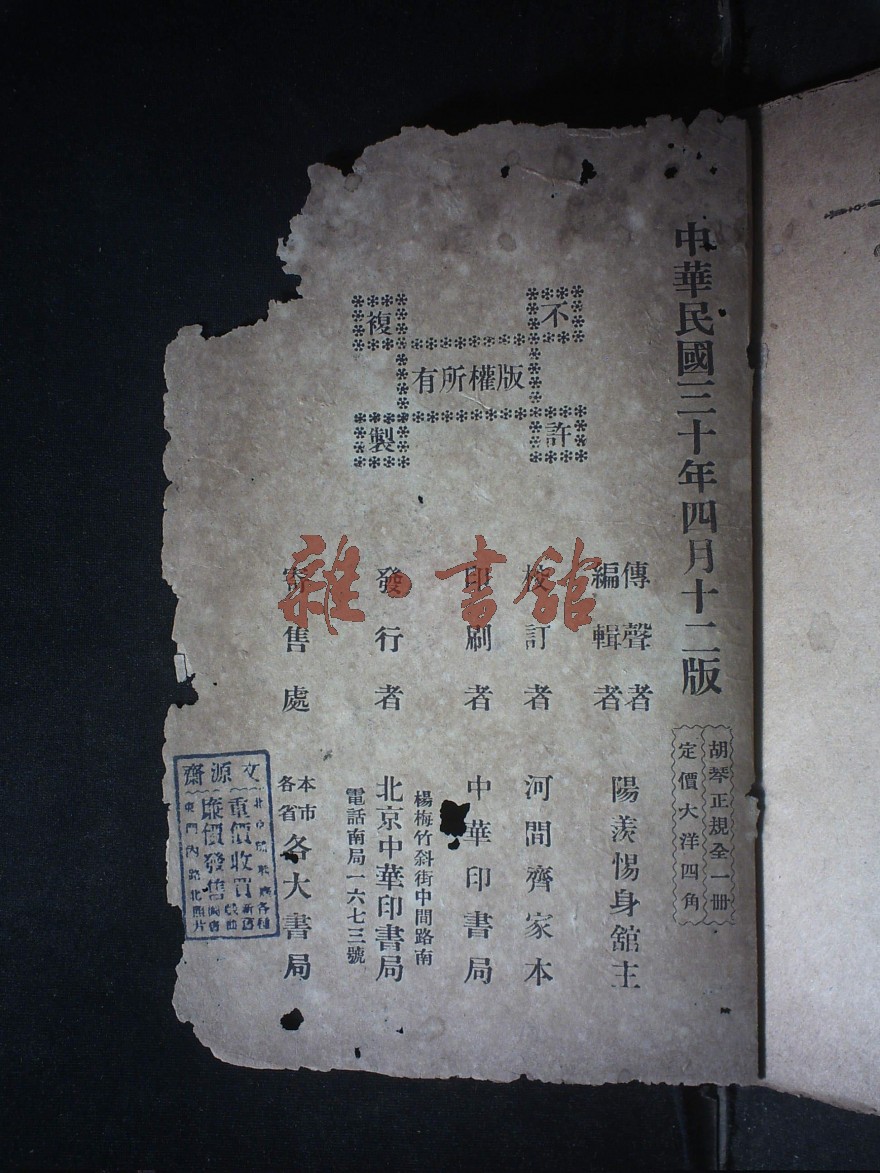 中華民國三十年四月十二版
胡琴正規全一册
定價大洋四角
不許
複製
版權所有
傳聲者
編輯者
陽羨惕身舘主
校訂者 河間齊家本
印刷者 中華印書局
楊梅竹斜街中間路南
發行者 北京中華印書局
電話南局一六七三號
寄售處 本市各省各大書局
雜·書舘
文源齋
重價收買
廉價發售
東門內路北